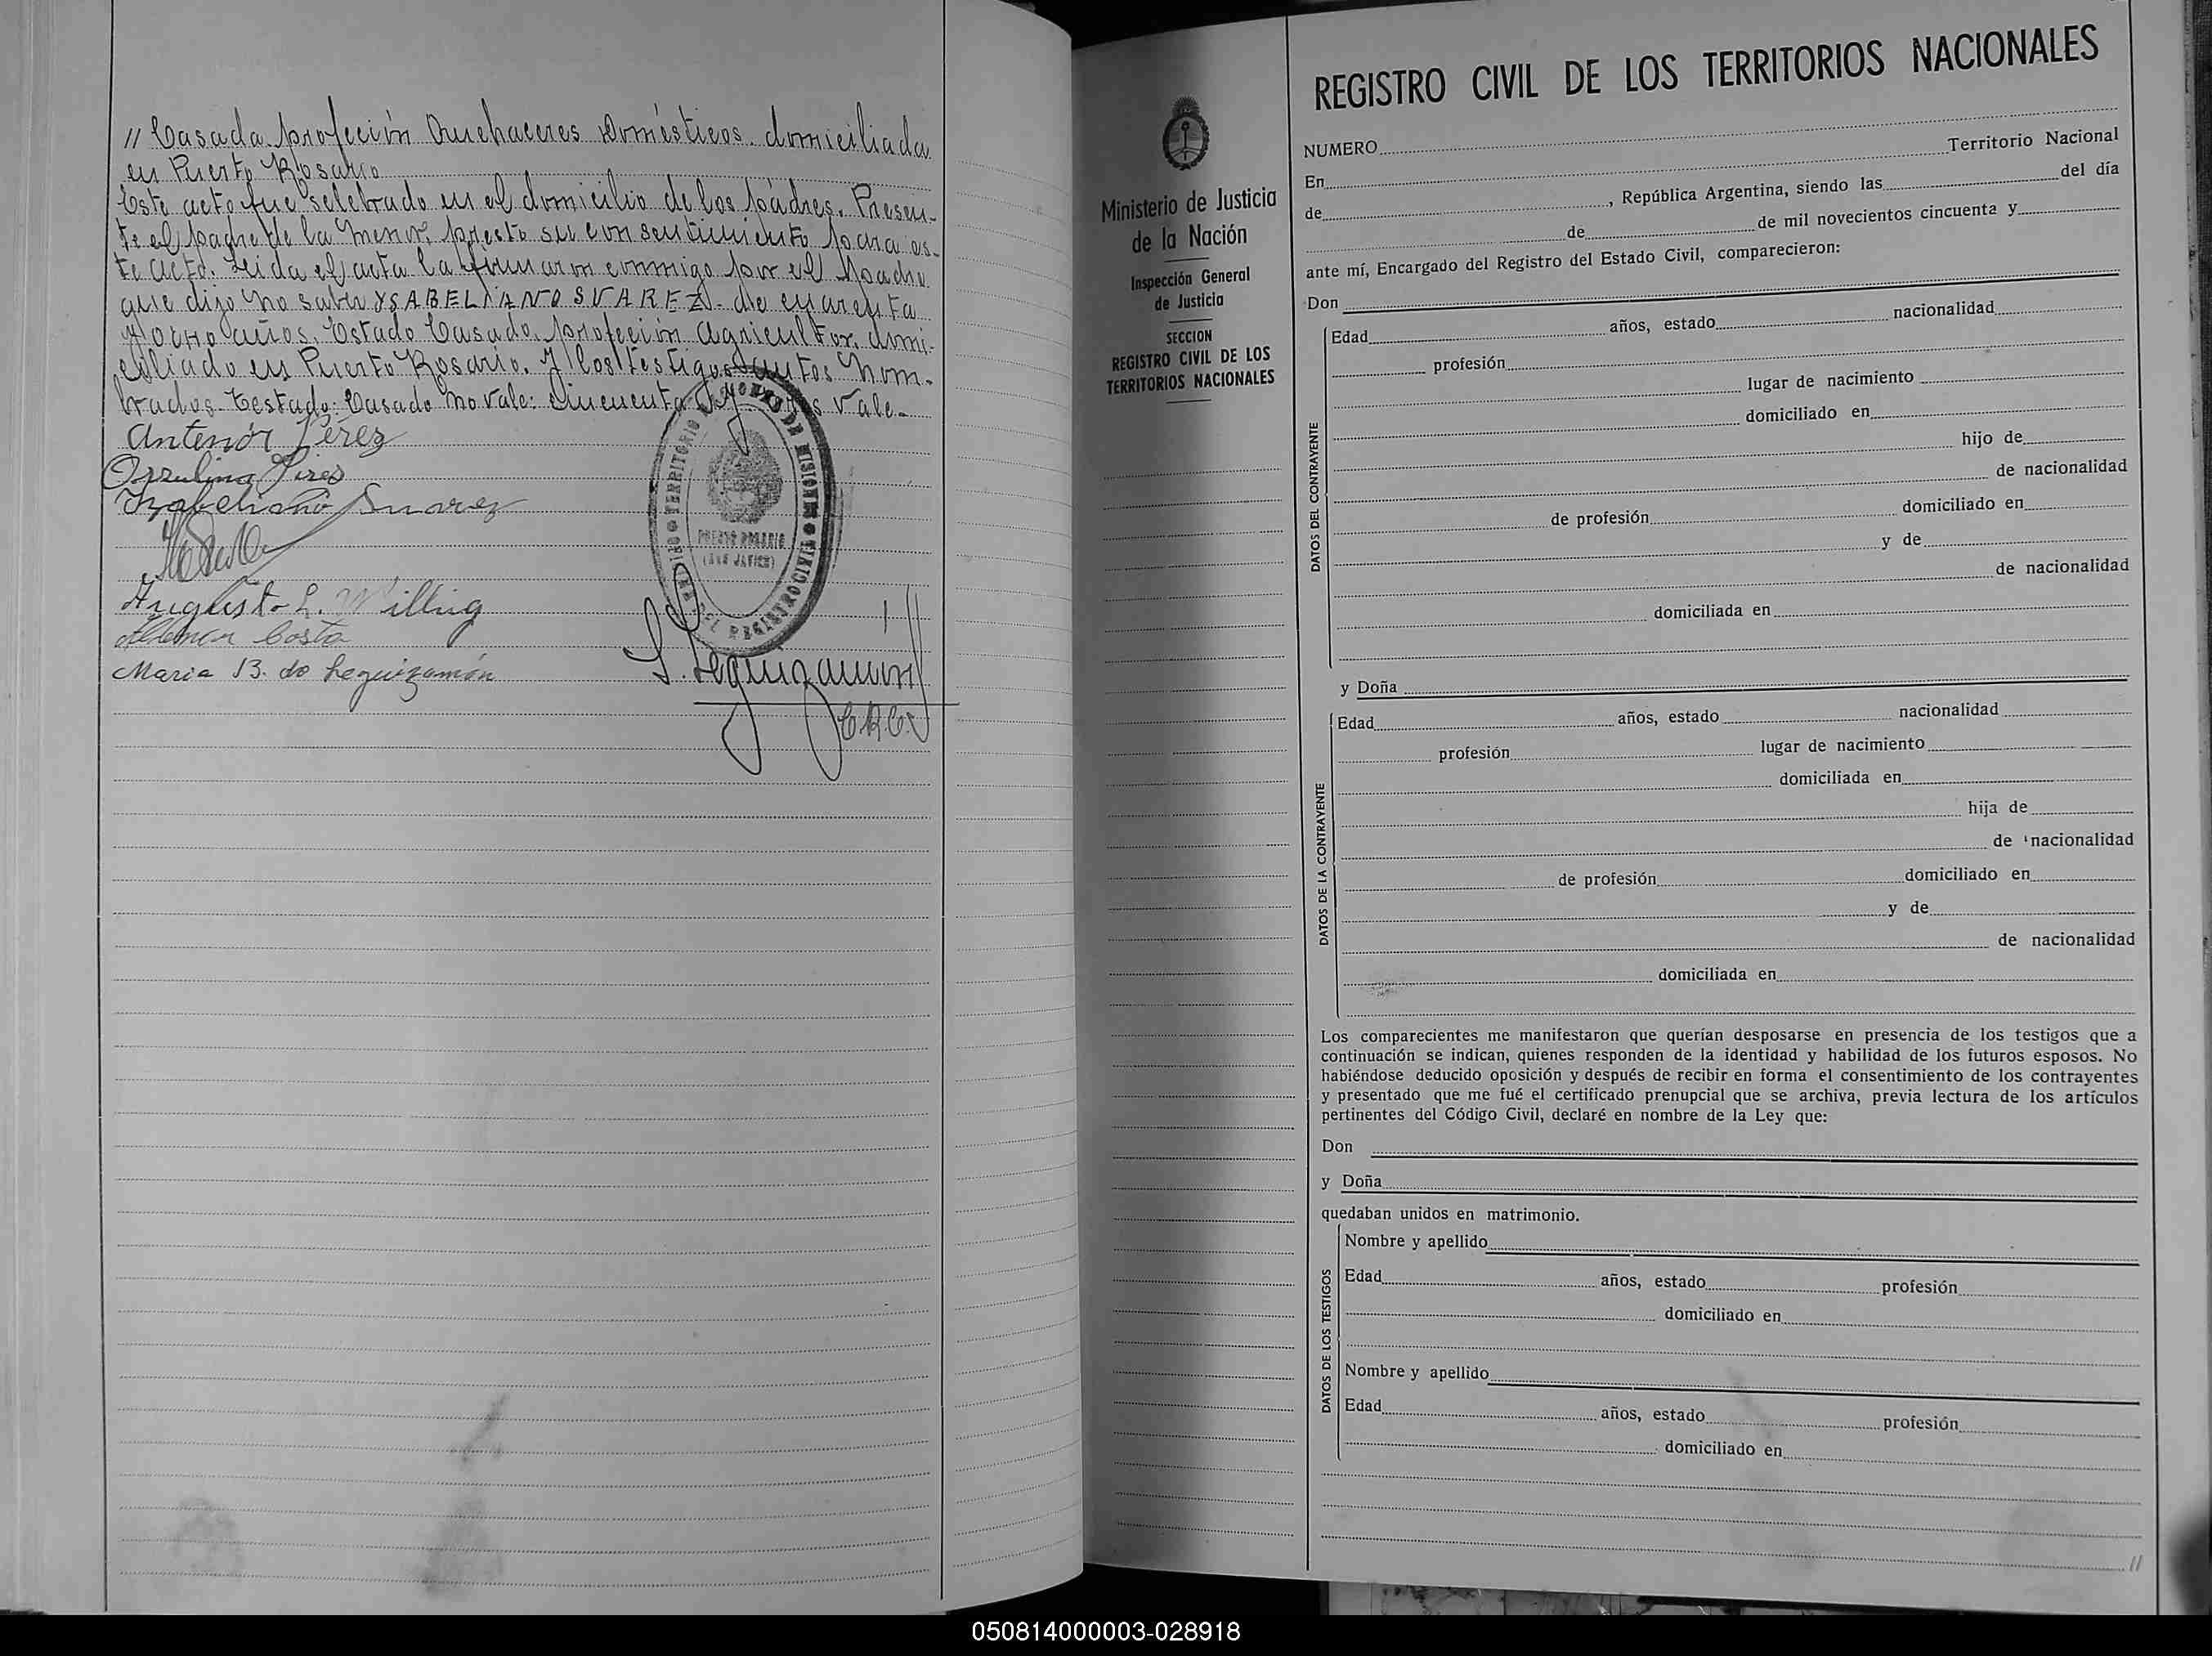 // Casada. profeción Quehaceres Domésticos. domiciliada
en Puerto Rosario
Este acto fue selebrado en el domicilio de los pádres. Presen-
te el padre de la menor, presto su consentimiento para es-
te acto. Leida el acta la firmaron conmigo por el padre
que dijo no saber YSABELIANO SUAREZ. de cuarenta
y ocho años. Estado Casado. profeción Agricultor, domi-
ciliado en Puerto Rosario. Y los testigos antes nom-
brados. Testado: Casado no vale: Cincuenta vale.-
Antenór Pérez
Orzulina Pires
Yzabeliano Suarez
Augusto L. Willig
Costa
Maria B. de Leguizamón
TERRITORIO NACIONAL DE MISIONES
PUERTO ROSARIO
(SAN JAVIER)
DEL REGISTRO CIVIL
L. Leguizamón
Ministerio de Justicia
de la Nación
Inspección General
de Justicia
SECCION
REGISTRO CIVIL DE LOS
TERRITORIOS NACIONALES
REGISTRO CIVIL DE LOS TERRITORIOS NACIONALES
NUMERO
En Territorio Nacional
de , República Argentina, siendo las del día
de de mil novecientos cincuenta y
ante mí, Encargado del Registro del Estado Civil, comparecieron:
Don
DATOS DEL CONTRAYENTE
Edad años, estado nacionalidad
profesión
lugar de nacimiento
domiciliado en
hijo de
de nacionalidad
de profesión domiciliado en
y de
de nacionalidad
domiciliada en
y Doña
DATOS DE LA CONTRAYENTE
Edad años, estado nacionalidad
profesión lugar de nacimiento
domiciliada en
hija de
de nacionalidad
de profesión domiciliado en
y de
de nacionalidad
domiciliada en
Los comparecientes me manifestaron que querían desposarse en presencia de los testigos que a
continuación se indican, quienes responden de la identidad y habilidad de los futuros esposos. No
habiéndose deducido oposición y después de recibir en forma el consentimiento de los contrayentes
y presentado que me fué el certificado prenupcial que se archiva, previa lectura de los artículos
pertinentes del Código Civil, declaré en nombre de la Ley que:
Don
y Doña
quedaban unidos en matrimonio.
DATOS DE LOS TESTIGOS
Nombre y apellido
Edad años, estado profesión
domiciliado en
Nombre y apellido
Edad años, estado profesión
domiciliado en
//
050814000003-028918